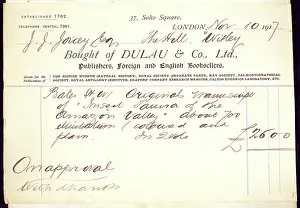 ESTABLISHED 1792.
TELEPHONE, CENTRAL 7361.
37, Soho Square,
LONDON, Nov 10 1917
J. J. Joicey Esq The Hill, Witley
Bought of DULAU & Co., Ltd.,
Publishers, Foreign and English Booksellers.
Bates H W Original Manuscript
of "Insect Fauna of the
Amazon Valley" above 700
illustrations coloured and
plain. In 2 vols
£26 0 0
On approval
With thanks